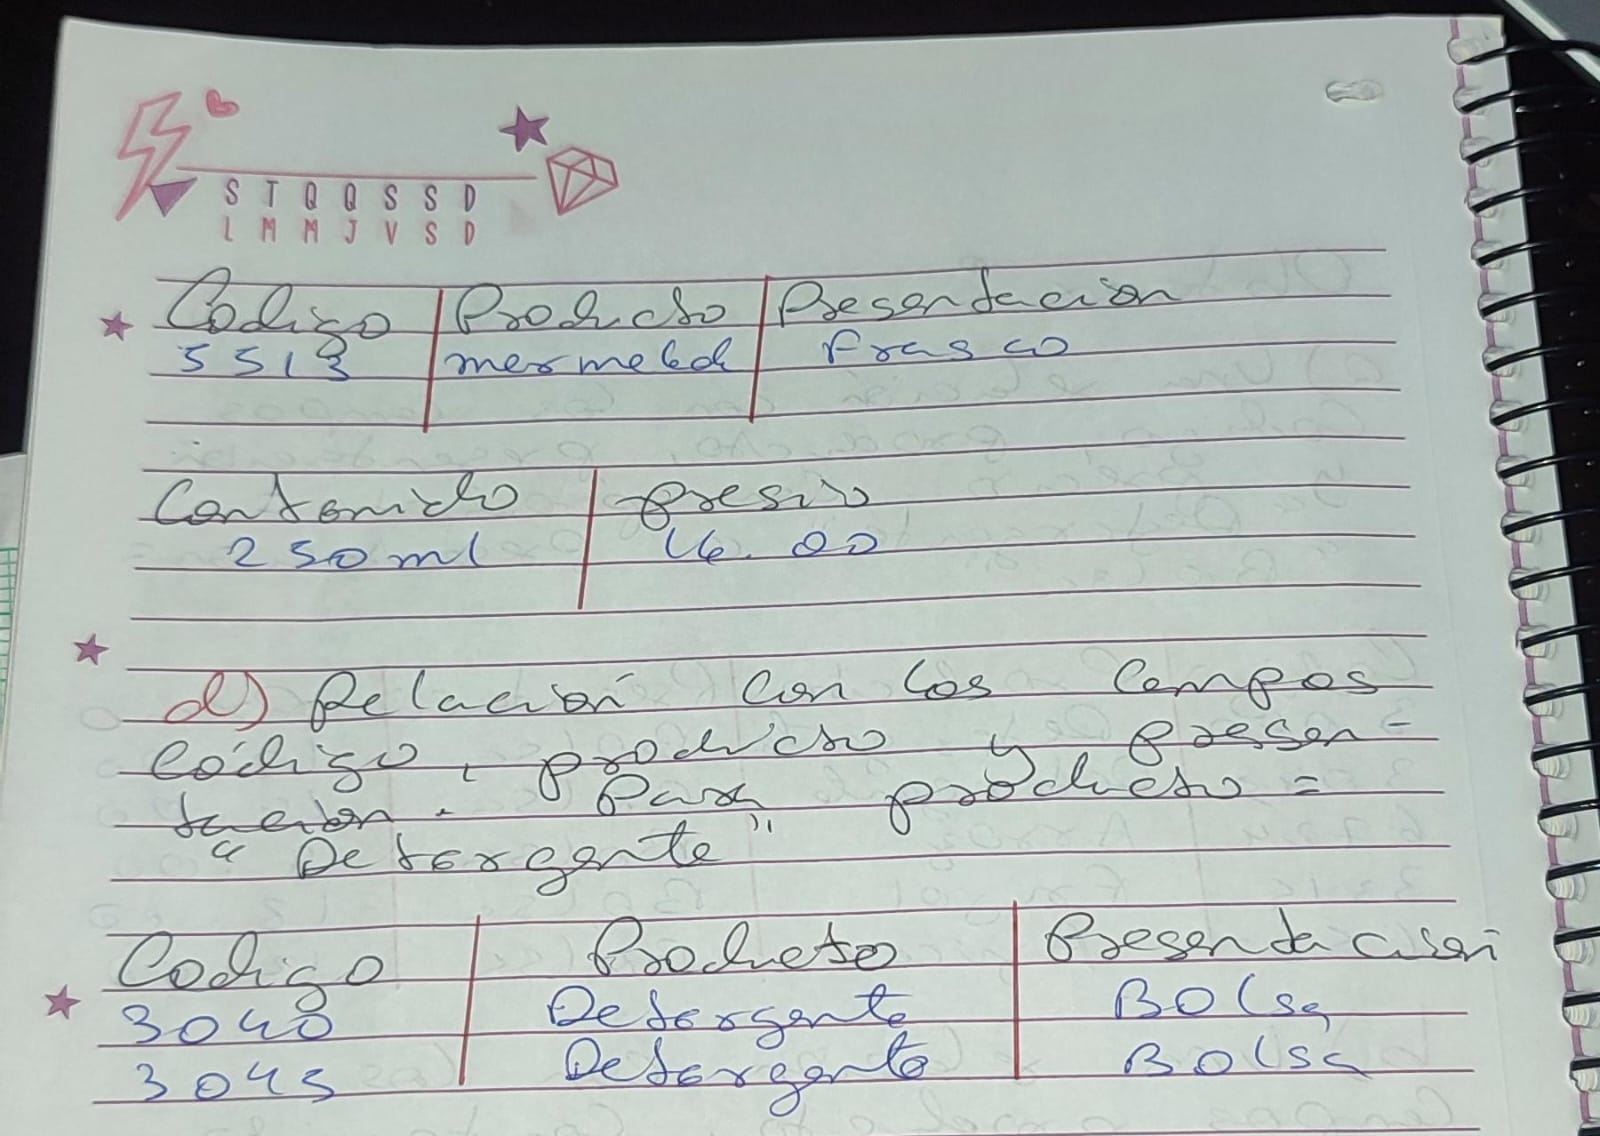 S T Q Q S S D
L M M J V S D
Codigo Producto Presentacion
5513 mermelad Frasco
Contenido presio
250ml 16.00
d) Relación con los campos
código, producto y presen-
tación. Para producto =
" Detergente"
Codigo Producto Presentación
3040 Detergente Bolsa
3045 Detergente Bolsa